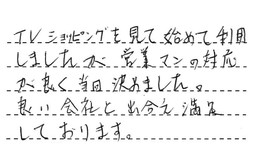 TVショッピングを見て始めて利用
しましたが営業マンの対応
が良く当日決めました。
良い会社と出会え満足
しております。